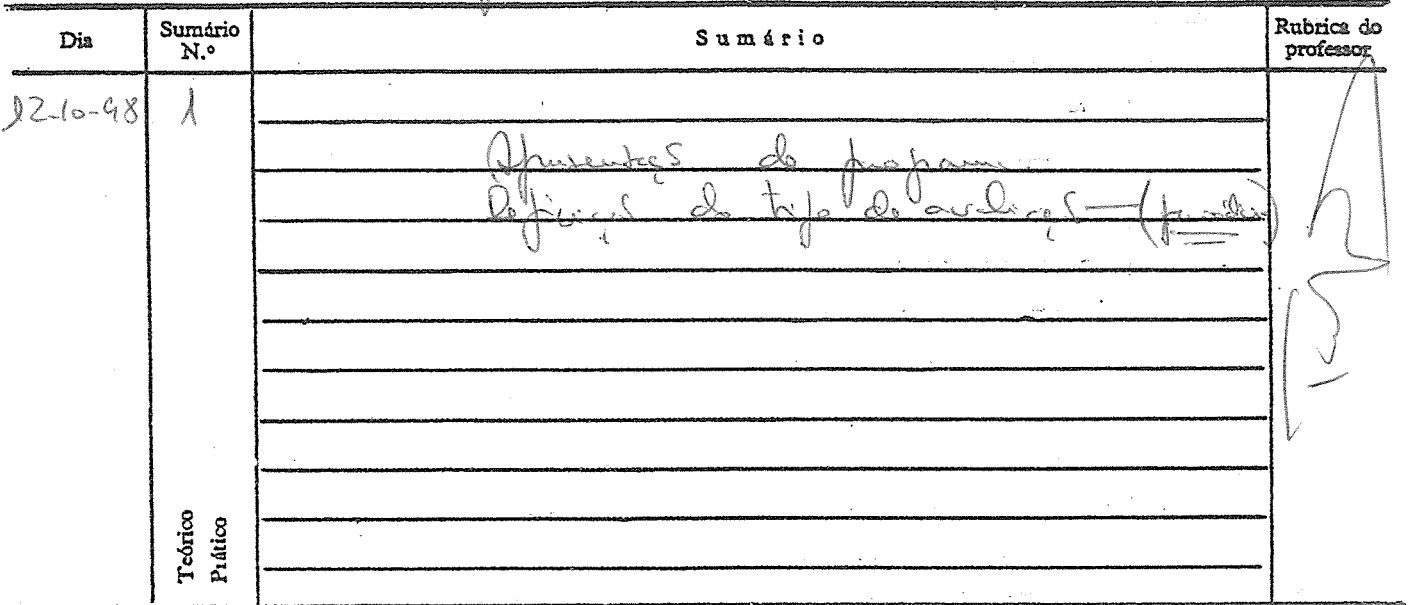 Dia Sumário N.º Sumário Rubrica do professor
12-10-98 1
Apresentação do programa
Definição do tipo de avaliação — (
Teórico
Prático